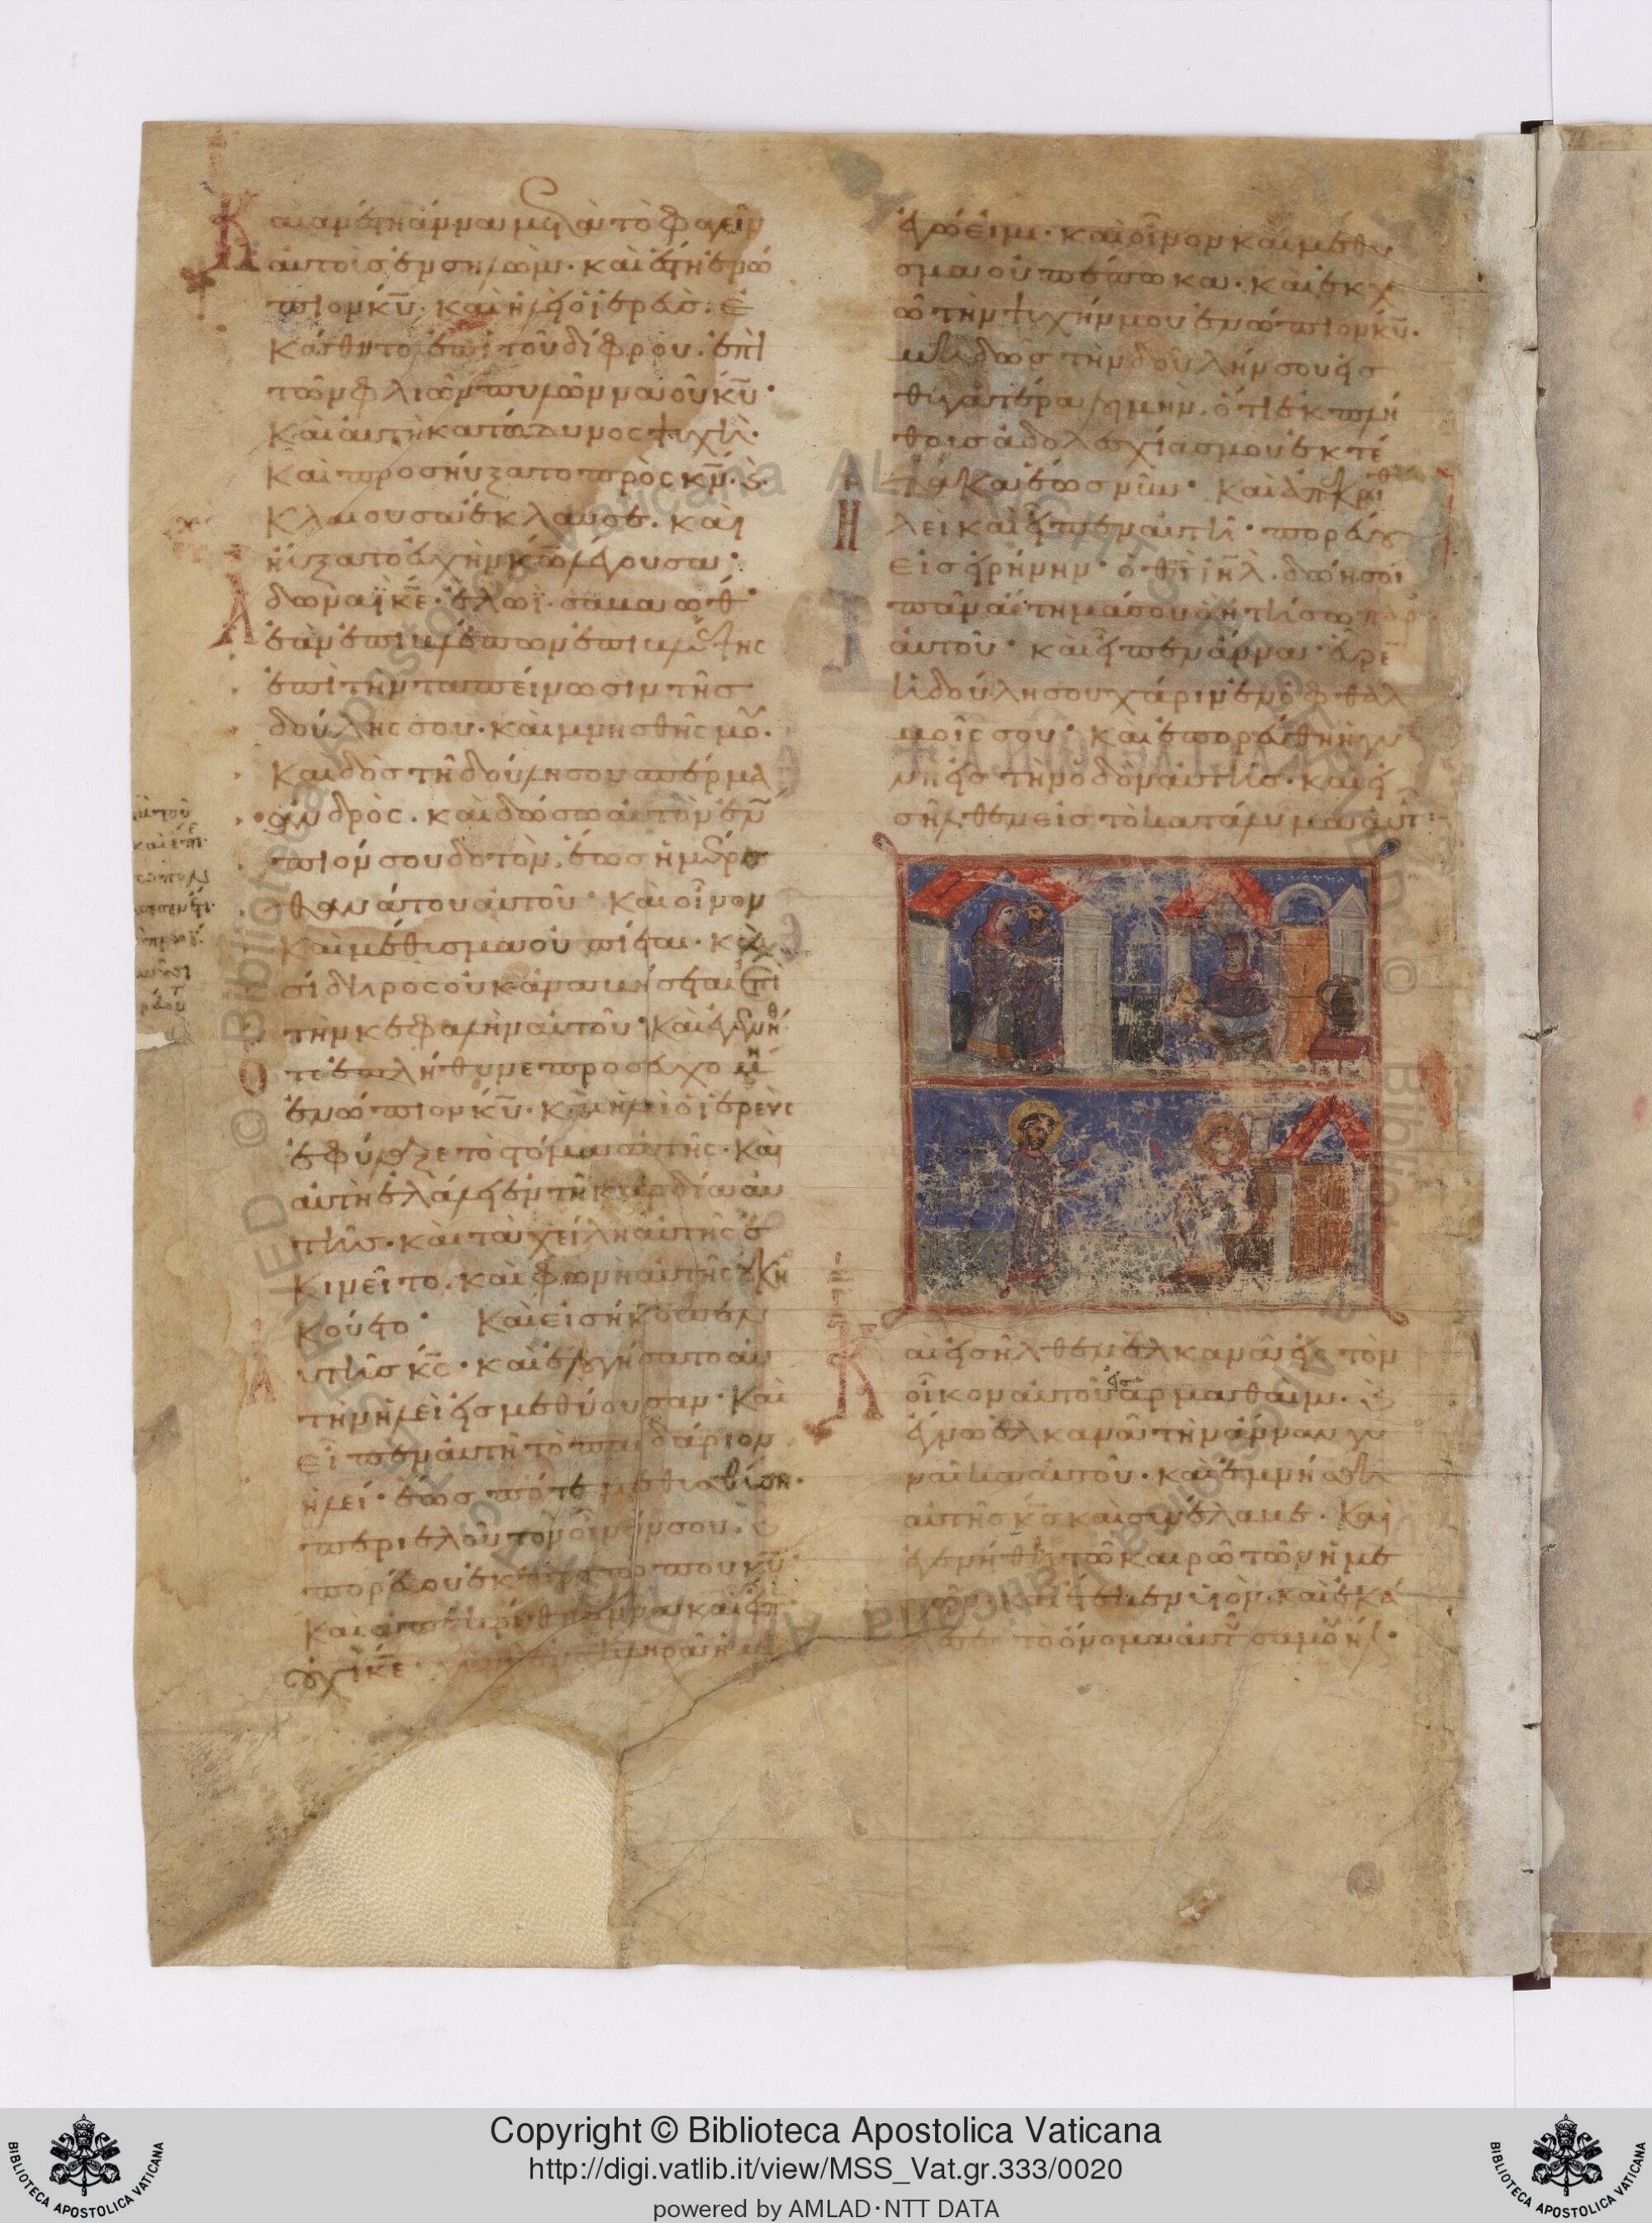 Καὶ ἀνέστη ἄννα μετὰ τὸ φαγεῖν
αὐτοὺς ἐν σηλὼμ· καὶ ἔστη ἐνώ
πιον κ̅υ̅· καὶ ἠλεὶ ὁ ἱερεὺς ἐ
κάθητο ἐπὶ τοῦ δίφρου· ἐπὶ
τῶν φλιῶν πυλῶν ναοῦ κ̅υ̅·
Καὶ αὐτὴ κατώδυνος ψυχῆ·
Καὶ προσηύξατο πρὸς κ̅ν̅·
κλαίουσα ἔκλαυσε· καὶ
ηὔξατο εὐχὴν κ̅ω̅ λέγουσα·
Ἀδωναῒ κ̅ε̅· ἐλωῒ σαβαὼθ·
ἐὰν ἐπιβλέπων ἐπιβλέψης
ἐπὶ τὴν ταπείνωσιν τῆς
δούλης σου· καὶ μνησθῆς μου·
Καὶ δὸς τῆ δούλη σου σπέρμα
ἀνδρὸς· καὶ δώσω αὐτὸν ἐνώ
πιόν σου δοτὸν· ἕως ἡμέρας
θανάτου αὐτοῦ· Καὶ οἶνον
καὶ μέθυσμα οὐ πίεται· καὶ
σίδηρος οὐκ ἀναβήσεται ἐπὶ
τὴν κεφαλὴν αὐτοῦ· Καὶ ἐγενήθ
ὅτε ἐπλήθυνε προσευχομένη
ἐνώπιον κ̅υ̅· καὶ ἠλεὶ ὁ ἱερεὺς
ἐφύλαξε τὸ στόμα αὐτῆς· Καὶ
αὐτὴ ἐλάλει ἐν τῆ καρδία αὐ
τῆς· καὶ τὰ χείλη αὐτῆς ἐ
κινεῖτο· καὶ φωνὴ αὐτῆς οὐκ ἠ
κούετο· Καὶ εἰσήκουσεν
αὐτῆς κ̅ς̅· καὶ ἐλογίσατο αὐ
τὴν ἠλεὶ εἰς μεθύουσαν· Καὶ
εἶπεν αὐτῆ τὸ παιδάριον
ἠλεί· ἕως πότε μεθυσθήση·
περιελοῦ τὸν οἶνόν σου·
πορεύου ἐκ προσώπου κ̅υ̅
Καὶ ἀπεκρίθη ἄννα καὶ εἶπεν
οὐχὶ κ̅ε̅· ἡμέρα
ἐγώ εἰμι· καὶ οἶνον καὶ μέθυ
σμα οὐ πέπωκα· καὶ ἐκχ
ῶ τὴν ψυχήν μου ἐνώπιον κ̅υ̅·
μὴ δῶς τὴν δούλην σου εἰς
θυγατέρα λοιμήν· ὅτι ἐκ πλή
θους ἀδολεσχίας μου ἐκτέ
τακα ἕως νῦν· Καὶ ἀπεκρίθη
Ἠλεὶ καὶ εἶπεν αὐτῆ· πορεύου
εἰς εἰρήνην· ὁ θ̅ς̅ ι̅η̅λ̅· δώη σοι
πᾶν αἴτημά σου ὃ ἠτήσω παρ
αὐτοῦ· καὶ εἶπεν ἄννα· εὗρεν
ἡ δούλη σου χάριν ἐν ὀφθαλ
μοῖς σου· Καὶ ἐπορεύθη ἡ γυ
νὴ εἰς τὴν ὁδὸν αὐτῆς· καὶ εἰ
σῆλθεν εἰς τὸ κατάλυμα αὐτῆς:-
Καὶ εἰσῆλθεν ἐλκανᾶ εἰς τὸν
οἶκον αὐτοῦ εἰς ἀρμαθαὶμ·
ἔγνω ἐλκανᾶ τὴν ἄνναν γυ
ναῖκα αὐτοῦ· καὶ ἐμνήσθη
αὐτῆς κ̅ς̅ καὶ συνέλαβε· Καὶ
ἐγενήθη τῶ καιρῶ τῶν ἡμε
ρῶν· καὶ ἔτεκεν υἱὸν· καὶ ἐκά
λεσε τὸ ὄνομα αὐτοῦ σαμουήλ·
Copyright © Biblioteca Apostolica Vaticana
http://digi.vatlib.it/view/MSS_Vat.gr.333/0020
powered by AMLAD·NTT DATA
BIBLIOTECA APOSTOLICA VATICANA
BIBLIOTECA APOSTOLICA VATICANA